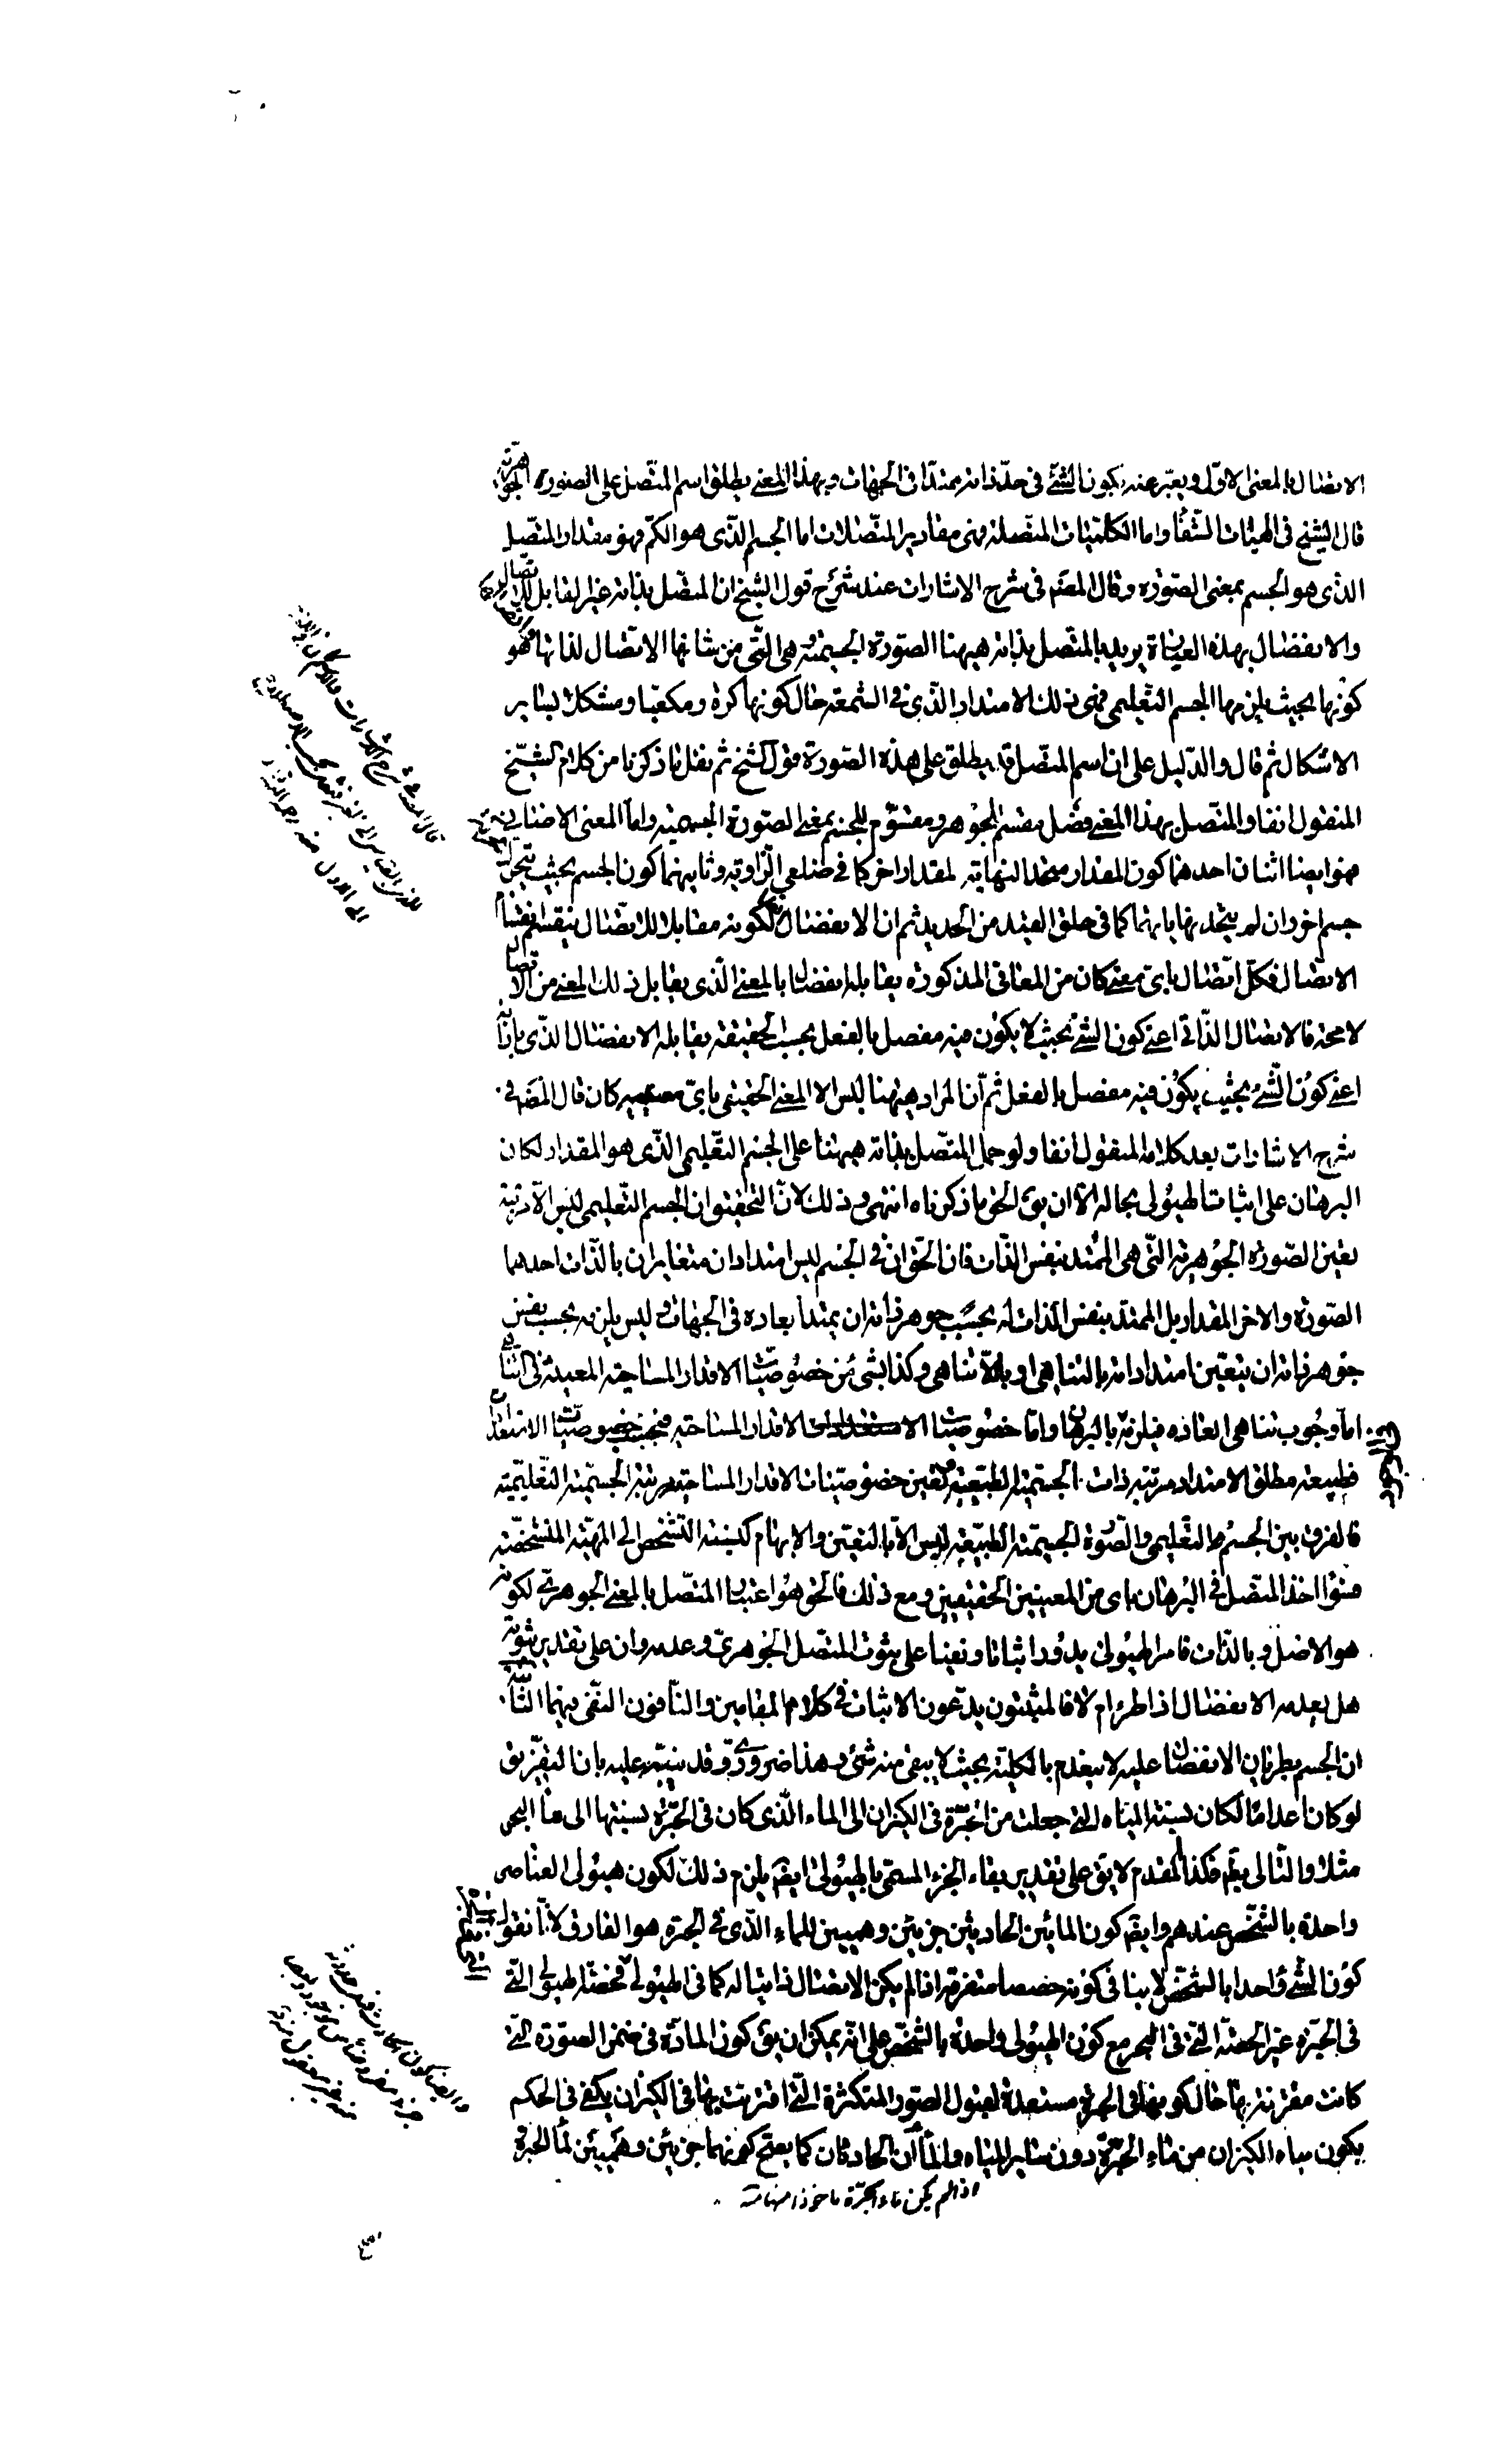 الاتصال بالمعنى الاول ويعبر عنه بكون الشئ فى حد ذاته ممتدا فى الجهات وبهذا المعنى يطلق اسم المتصل على الصورة الجوهرية
قال الشيخ فى الهيات الشفا واما الكميات المتصلة فهى مقادير المتصلات اما الجسم الذى هو الكم فهو مقدار المتصل
الذى هو الجسم بمعنى الصورة وقال المصنف فى شرح الاشارات عند شرح قول الشيخ ان المتصل بذاته غير القابل للاتصال
والانفصال بهذه العبارة يريد بالمتصل بذاته ههنا الصورة الجسمية وهى التى من شانها الاتصال لذاتها فهو
كونها بحيث يلزمها الجسم التعليمى فهى ذلك الامتداد الذى فى الشمعة حال كونها كرة ومكعبا ومشكلا بساير
الاشكال ثم قال والدليل على ان اسم المتصل قد يطلق على هذه الصورة قول الشيخ ثم نقل ما ذكرنا من كلام الشيخ
المنقول انفا والمتصل بهذا المعنى فصل مقسم للجوهر ومقوم للجسم بمعنى الصورة الجسمية واما المعنى الاضافى
فهو ايضا اثنان احدهما كون المقدار متحد النهاية لمقدار اخر كما فى ضلعى الزاوية وثانيهما كون الجسم بحيث يتحرك
جسم اخر وان لم يتحد نهاياتهما كما فى حلق القيد من الحديد ثم ان الانفصال لكونه مقابلا للاتصال ينقسم انقسام
الاتصال فكل اتصال باى معنى كان من المعانى المذكورة يقابله انفصال بالمعنى الذى يقابل ذلك المعنى من الاتصال
لا محة فالاتصال الذاتى اعنى كون الشئ بحيث لا يكون فيه مفصل بالفعل بحسب الحقيقة يقابله الانفصال الذى بازائه
اعنى كون الشئ بحيث يكون فيه مفصل بالفعل ثم ان المراد ههنا ليس الا المعنى الحقيقى باى كان قال المصنف فى
شرح الاشارات بعد كلامه المنقول انفا ولو حمل المتصل بذاته ههنا على الجسم التعليمى الذى هو المقدار لكان
البرهان على اثبات الهيولى بحاله الا ان يق الحق ما ذكرناه انتهى وذلك لان التحقيق ان الجسم التعليمى ليس الا مرتبة
تعين الصورة الجوهرية التى هى الممتد بنفس الذات فان الحق ان فى الجسم ليس امتدادان متغايران بالذات احدهما
الصورة والاخر المقدار بل الممتد بنفس الذات له بحسب جوهر ذاته ان يمتد ابعاده فى الجهات وليس يلزمه بحسب نفس
جوهر ذاته ان يتعين امتداداته بالتناهى او باللاتناهى وكذا بشئ من خصوصيات الاقدار المساحية المعينة فى
اما وجوب تناهى ابعاده فيلزمه بالبرهان واما خصوصيات الاقدار المساحية فبحسب خصوصيات الاستعدادات
فطبيعة مطلق الامتداد مرتبة ذات الجسمية الطبيعية وتعين خصوصيات الاقدار المساحية مرتبة الجسمية التعليمية
فالفرق بين الجسم التعليمى والصورة الجسمية الطبيعية ليس الا بالتعين والابهام كنسبة التشخص الى المهية المتشخصة
فسواء اخذ المتصل فى البرهان باى من المعنيين الحقيقيين ومع ذلك فالحق هو اعتبار المتصل بالمعنى الجوهرى لكونه
هو الاصل وبالذات فامر الهيولى يدور اثباتا ونفيا على ثبوت المتصل الجوهرى وعدمه وان على تقدير ثبوته
هل يعدمه الانفصال اذا طرء ام لا فالمثبتون يدعون الاثبات فى كلا المقامين والنافون النفى فيهما
ان الجسم بطريان الانفصال عليه لا ينعدم بالكلية بحيث لا يبقى منه شئ وهذا ضرورى وقد ينبه عليه بان التفريق
لو كان اعداما لكان نسبة المياه التى جعلت من الجرة فى الكيزان الى الماء الذى كان فى الجرة نسبتها الى ماء البحر
مثلا والتالى بط فكذا المقدم لا يق على تقدير بقاء الجزء المسمى بالهيولى ايضا يلزم ذلك لكون هيولى العناصر
واحدة بالشخص عندهم وايضا كون المائين الحادثين جزئين وهميين للماء الذى فى الجرة هو الفارق لانا نقول
كون الشئ واحدا بالشخص لا ينافى كونه حصصا متفرقة اذا لم يكن الاتصال ذاتيا له كما فى الهيولى فحصة الهيولى التى
فى الجرة غير الحصة التى فى البحر مع كون الهيولى واحدة بالشخص على انه يمكن ان يق كون المادة فى ضمن الصورة التى
كانت مقترنة بها حال كونها فى الجرة مستعدة لقبول الصور المتكثرة التى اقترنت بها فى الكيزان يكفى فى الحكم
بكون مياه الكيزان من ماء الجرة دون ساير المياه والماآن الحادثان كما يصح كونهما جزئين وهميين لماء الجرة
اذا لم يكن ماء الجرة ماخوذا